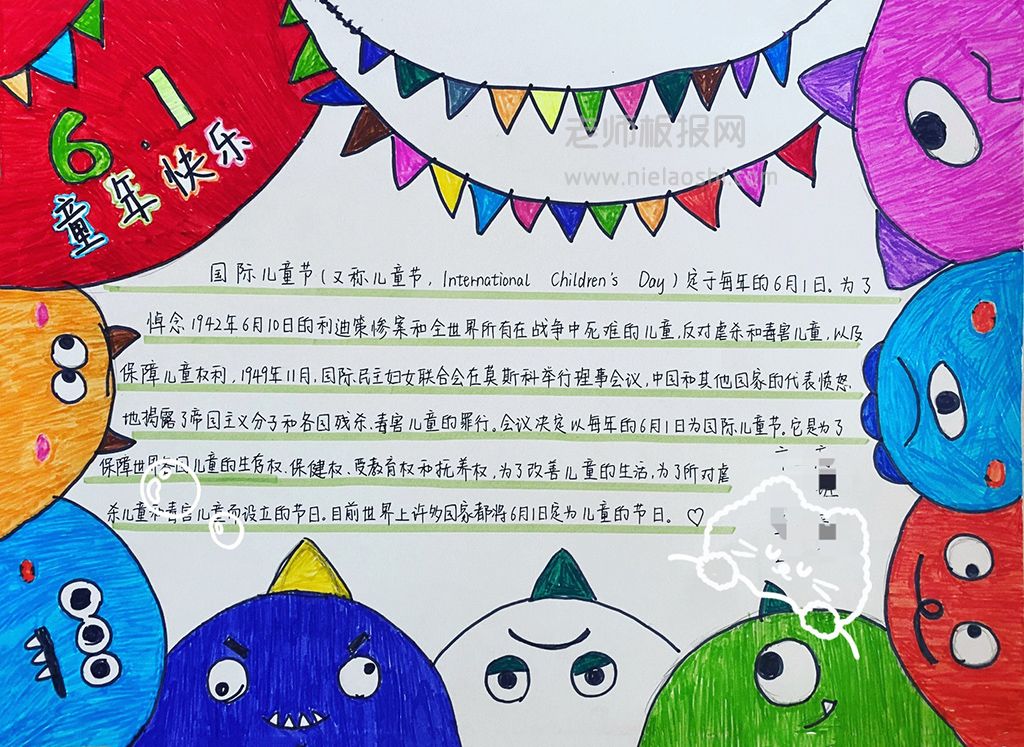 6.1
童年快乐
老师板报网
www.nielaoshi.com
国际儿童节(又称儿童节,International Children's Day)定于每年的6月1日。为了
悼念1942年6月10日的利迪策惨案和全世界所有在战争中死难的儿童,反对虐杀和毒害儿童,以及
保障儿童权利,1949年11月,国际民主妇女联合会在莫斯科举行理事会议,中国和其他国家的代表愤怒
地揭露了帝国主义分子和各国残杀、毒害儿童的罪行。会议决定以每年的6月1日为国际儿童节。它是为了
保障世界各国儿童的生存权、保健权、受教育权和抚养权,为了改善儿童的生活,为了所对虐
杀儿童和毒害儿童而设立的节日。目前世界上许多国家都将6月1日定为儿童的节日。
班